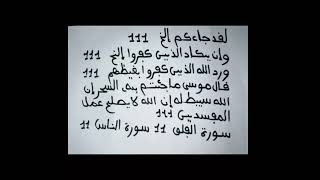 لقد جاءكم إلخ 111
وإن يكاد الذين كفروا إلخ 111
ورد الله الذين كفروا بغيظهم 111
قال موسى ما جئتم به السحر إن
الله سيبطله إن الله لا يصلح عمل
المفسدين 111
سورة الفلق 11 سورة الناس 11